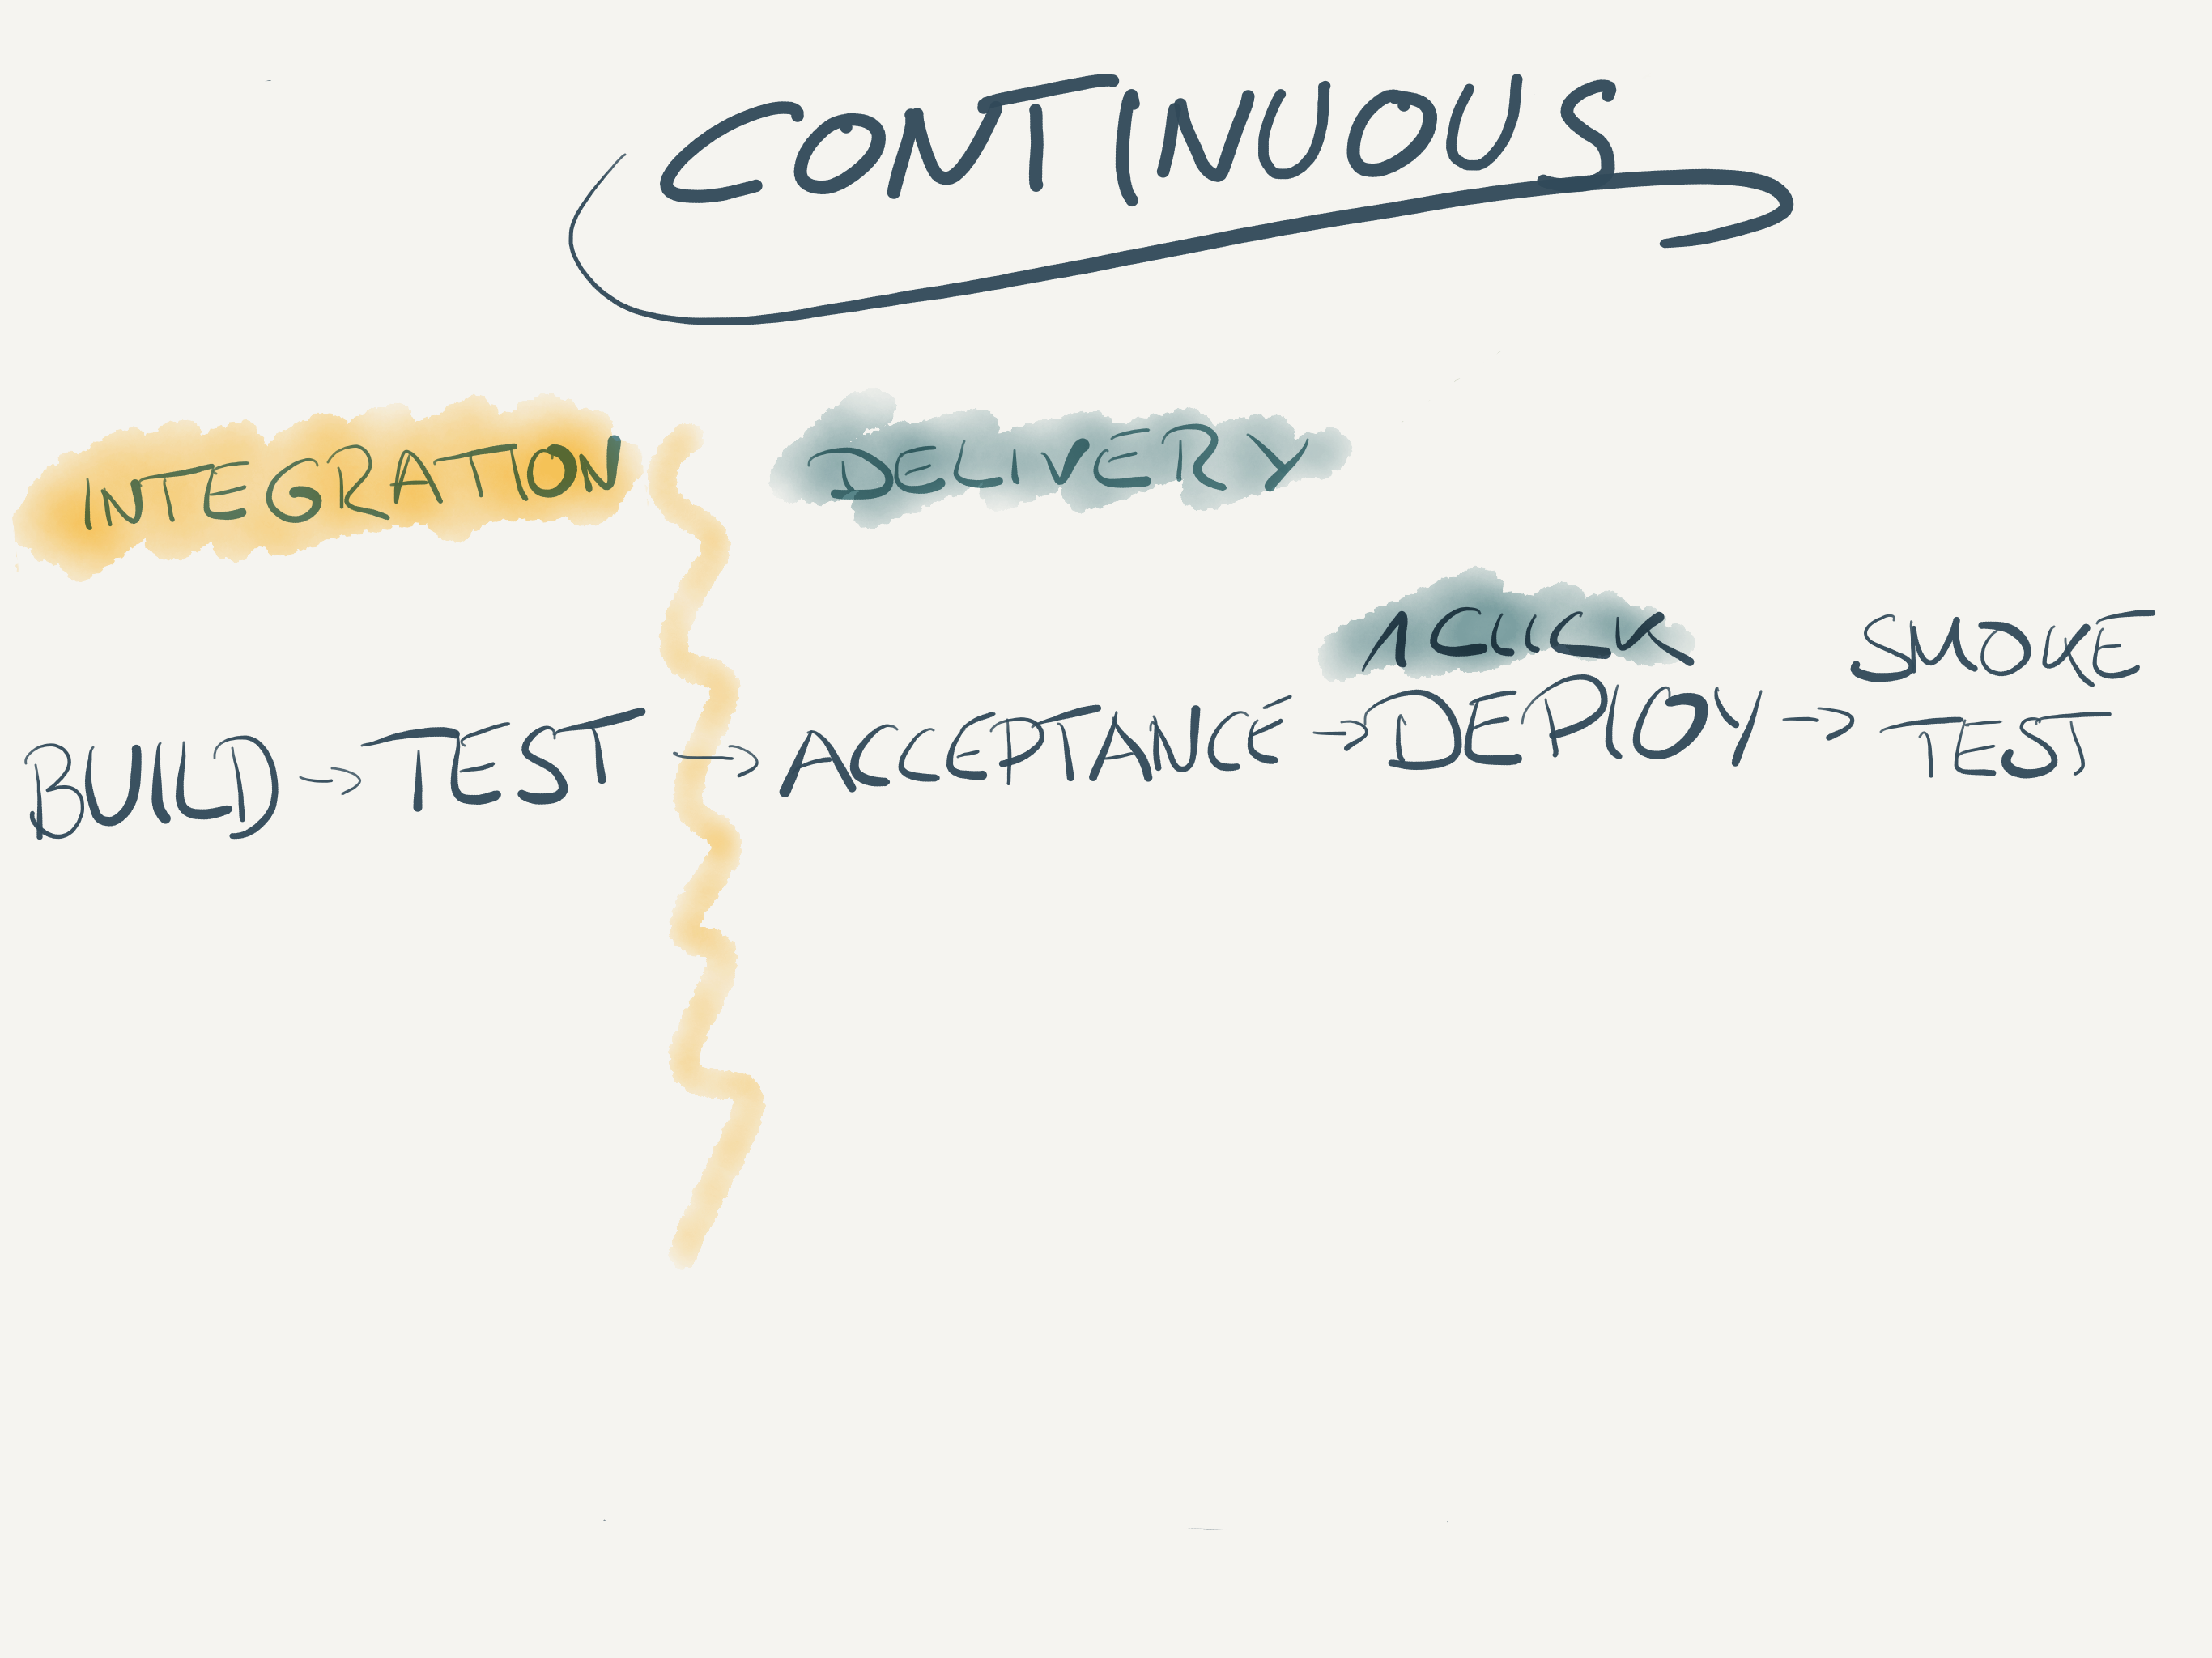 CONTINUOUS
INTEGRATION DELIVERY
1 CLICK
BUILD → TEST → ACCEPTANCE → DEPLOY → SMOKE
TEST